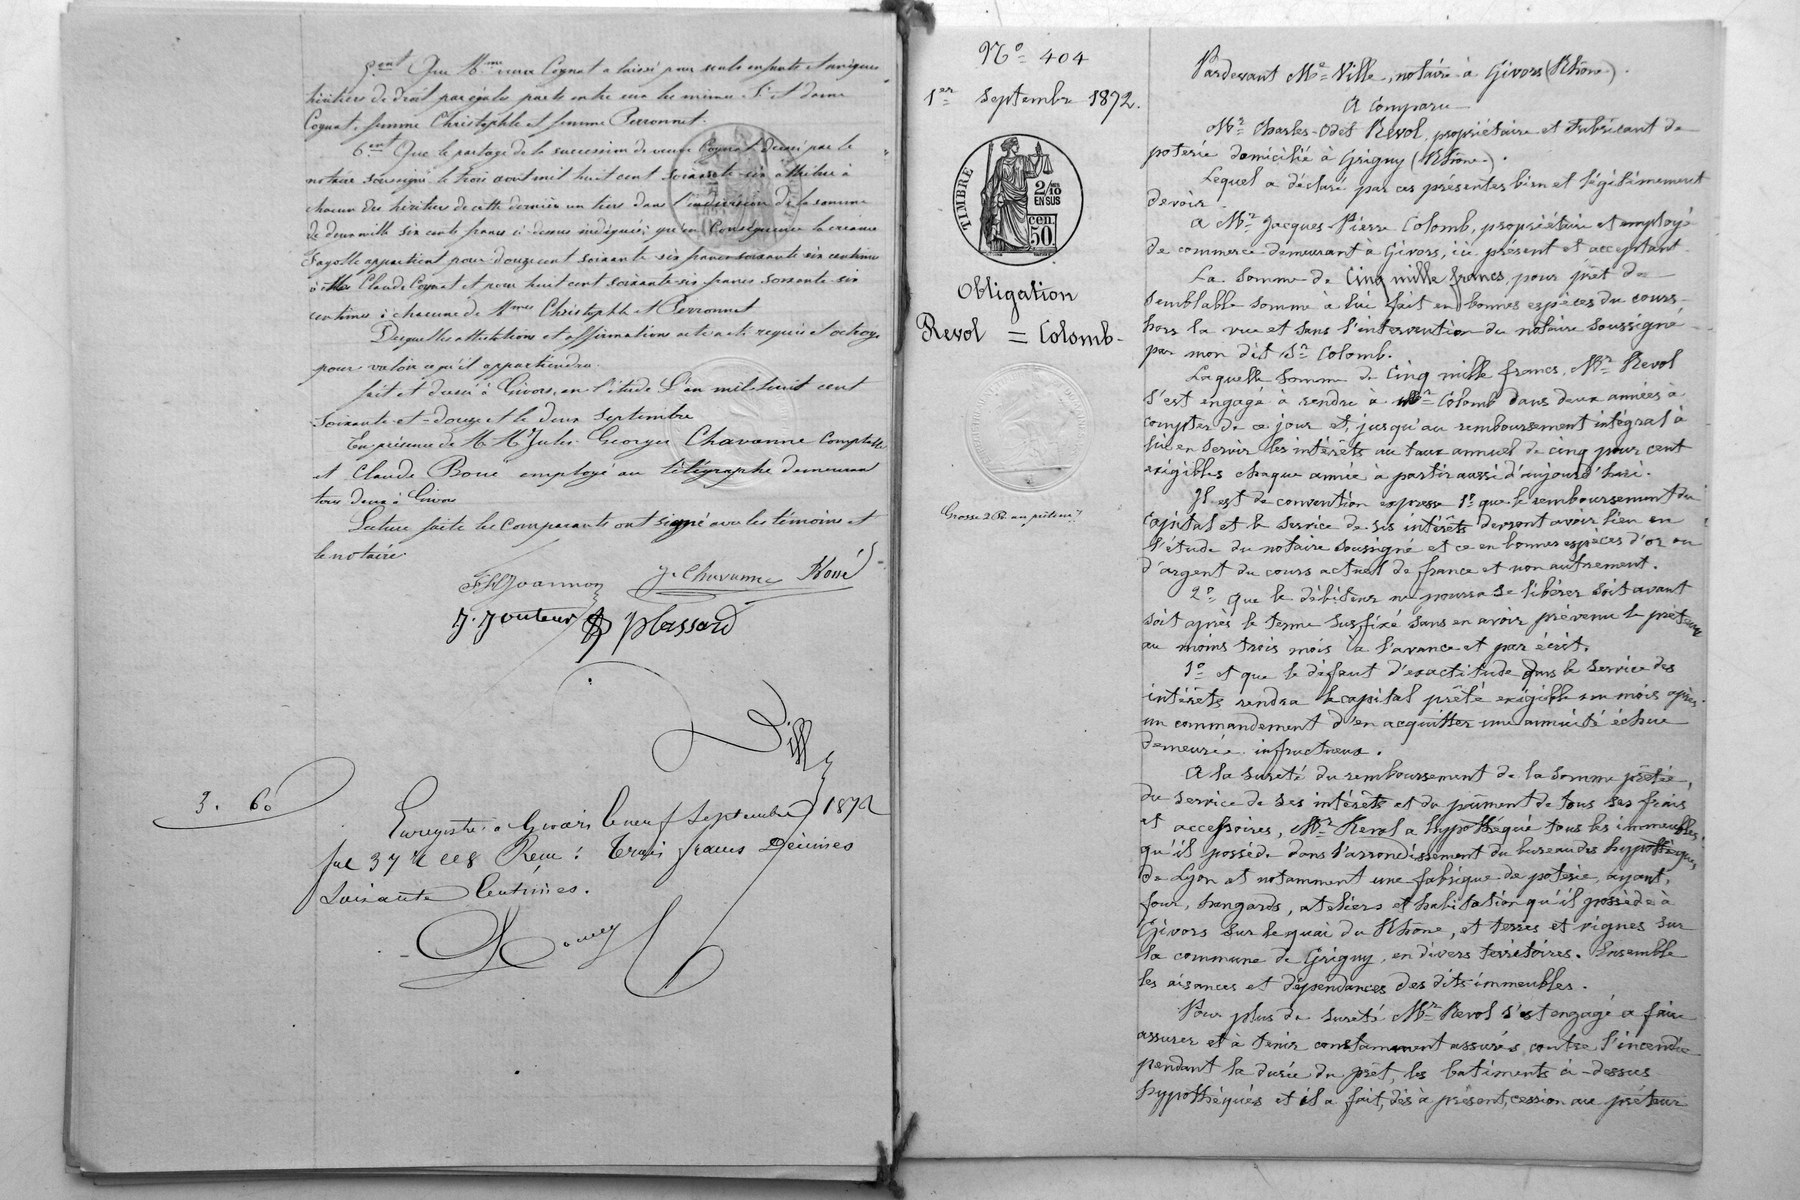 5ent Que Mme veuve Cognat a laissé pour seuls enfants et uniques
héritiers de droit par égales parts entre eux les mêmes Sr et dame
Cognat, femme Christophle et femme Perronnet.
6ent Que le partage de la succession de veuve Cognat dressé par le
notaire soussigné le trois août mil huit cent soixante six attribue à
chacun des héritiers de cette dernière un tiers dans l'indivision de la somme
de deux mille six cents francs ci dessus indiquée; qu'en conséquence la créance
Fayolle appartient pour douze cent soixante six francs soixante six centimes
à Mr Claude Cognat et pour huit cent soixante six francs soixante six
centimes à chacune de Mmes Christophle et Perronnet
Desquelles attestations et affirmations acte a été requis et octroyé
pour valoir ce qu'il appartiendra.
fait et dressé à Givors, en l'étude L'an mil huit cent
soixante et douze et le deux Septembre
En présence de M. Mr Jules Georges Chavanne Comptable
et Claude Boué employé au télégraphe demeurant
tous deux à Givors
Lecture faite les comparants ont signé avec les témoins et
le notaire.
J. Chavanne Boué
J. Jouteur Plassard
Ville
3. 60
Enregistré à Givors le neuf Septembre 1872
fol 37 Reçu: Trois francs Décimes
Soixante Centimes.
No 404
1er Septembre 1872.
TIMBRE
2/10
EN SUS
cen.
50
Obligation
Revol = Colomb
Grosse au prêteur
Pardevant Me Ville, notaire à Givors (Rhône).
A Comparu
Mr Charles-Odet Revol, propriétaire et fabricant de
poterie domicilié à Grigny (Rhône).
Lequel a déclaré par ces présentes bien et légitimement
devoir
A Mr Jacques Pierre Colomb, propriétaire et employé
de commerce demeurant à Givors, ici présent et acceptant
La somme de Cinq mille francs, pour prêt de
semblable somme à lui fait en bonnes espèces du cours
hors la vue et sans l'intervention du notaire soussigné
par mon dit Sr Colomb.
Laquelle somme de Cinq mille francs, Mr Revol
s'est engagé à rendre à Mr Colomb dans deux années à
compter de ce jour et, jusqu'au remboursement intégral à
lui en servir les intérêts au taux annuel de cinq pour cent
exigibles chaque année à partir aussi d'aujourd'hui.
Il est de convention expresse 1o que le remboursement du
capital et le service de ses intérêts devront avoir lieu en
l'étude du notaire soussigné et ce en bonnes espèces d'or ou
d'argent du cours actuel de france et non autrement.
2o que le débiteur ne pourra se libérer soit avant
soit après le terme susfixé sans en avoir prévenu le prêteur
au moins trois mois à l'avance et par écrit.
3o et que le défaut d'exactitude dans le service des
intérêts rendra le capital prêté exigible un mois après
un commandement d'en acquitter une annuité échue
demeurée infructueux.
A la sureté du remboursement de la somme prêtée,
du service de ses intérêts et du paiment de tous ses frais
et accessoires, Mr Revol a hypothéqué tous les immeubles
qu'il possède dans l'arrondissement du bureau des hypothèques
de Lyon et notamment une fabrique de poterie, ayant,
four, hangards, ateliers et habitation qu'il possède à
Givors sur le quai du Rhône, et terres et vignes sur
la commune de Grigny, en divers territoires. Ensemble
les aisances et dépendances des dits immeubles.
Pour plus de sureté Mr Revol s'est engagé à faire
assurer et à tenir constamment assurés contre l'incendie
pendant la durée du prêt, les batiments ci-dessus
hypothéqués et il a fait, dès à présent, cession au prêteur